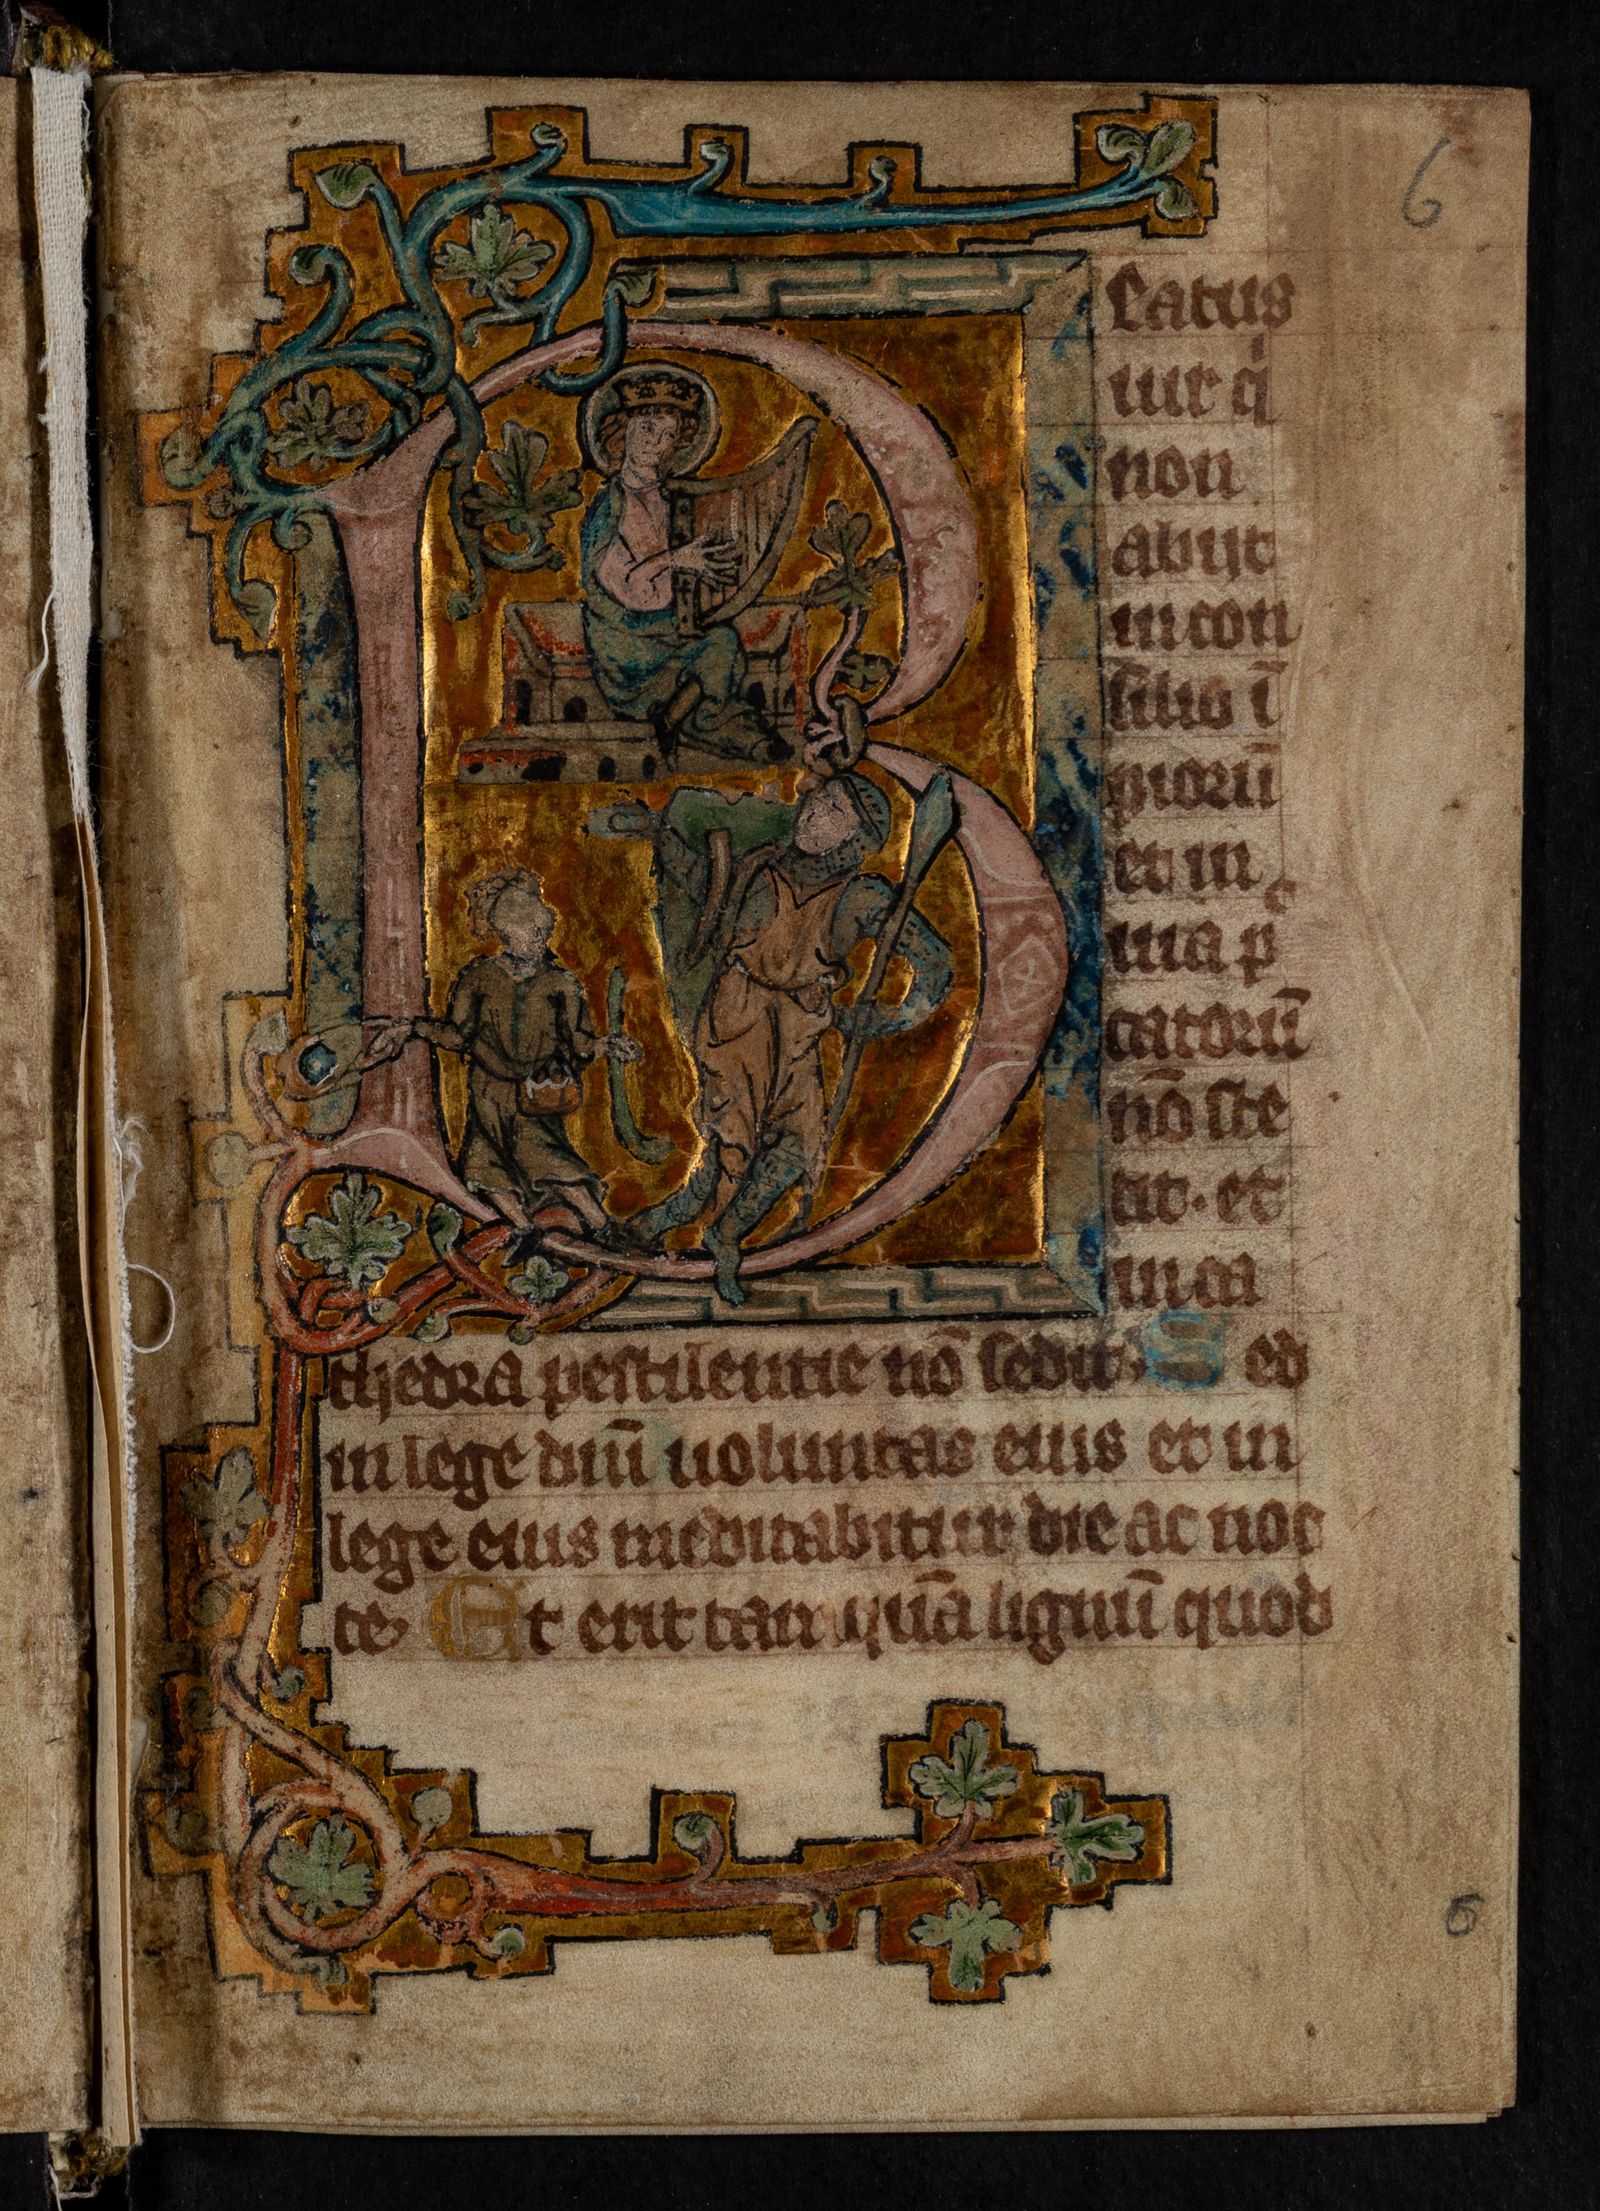 6
B
eatus
uir q̇
non
abijt
in con
silio ī
piorū
et in
uia pͨ
catorū
nō ste
tit. et
in ca
thedra pestilentie nō sedit. Sed
in lege dñi uoluntas eius et in
lege eius meditabitur die ac noc
te. Et erit tamquā lignū quod
6